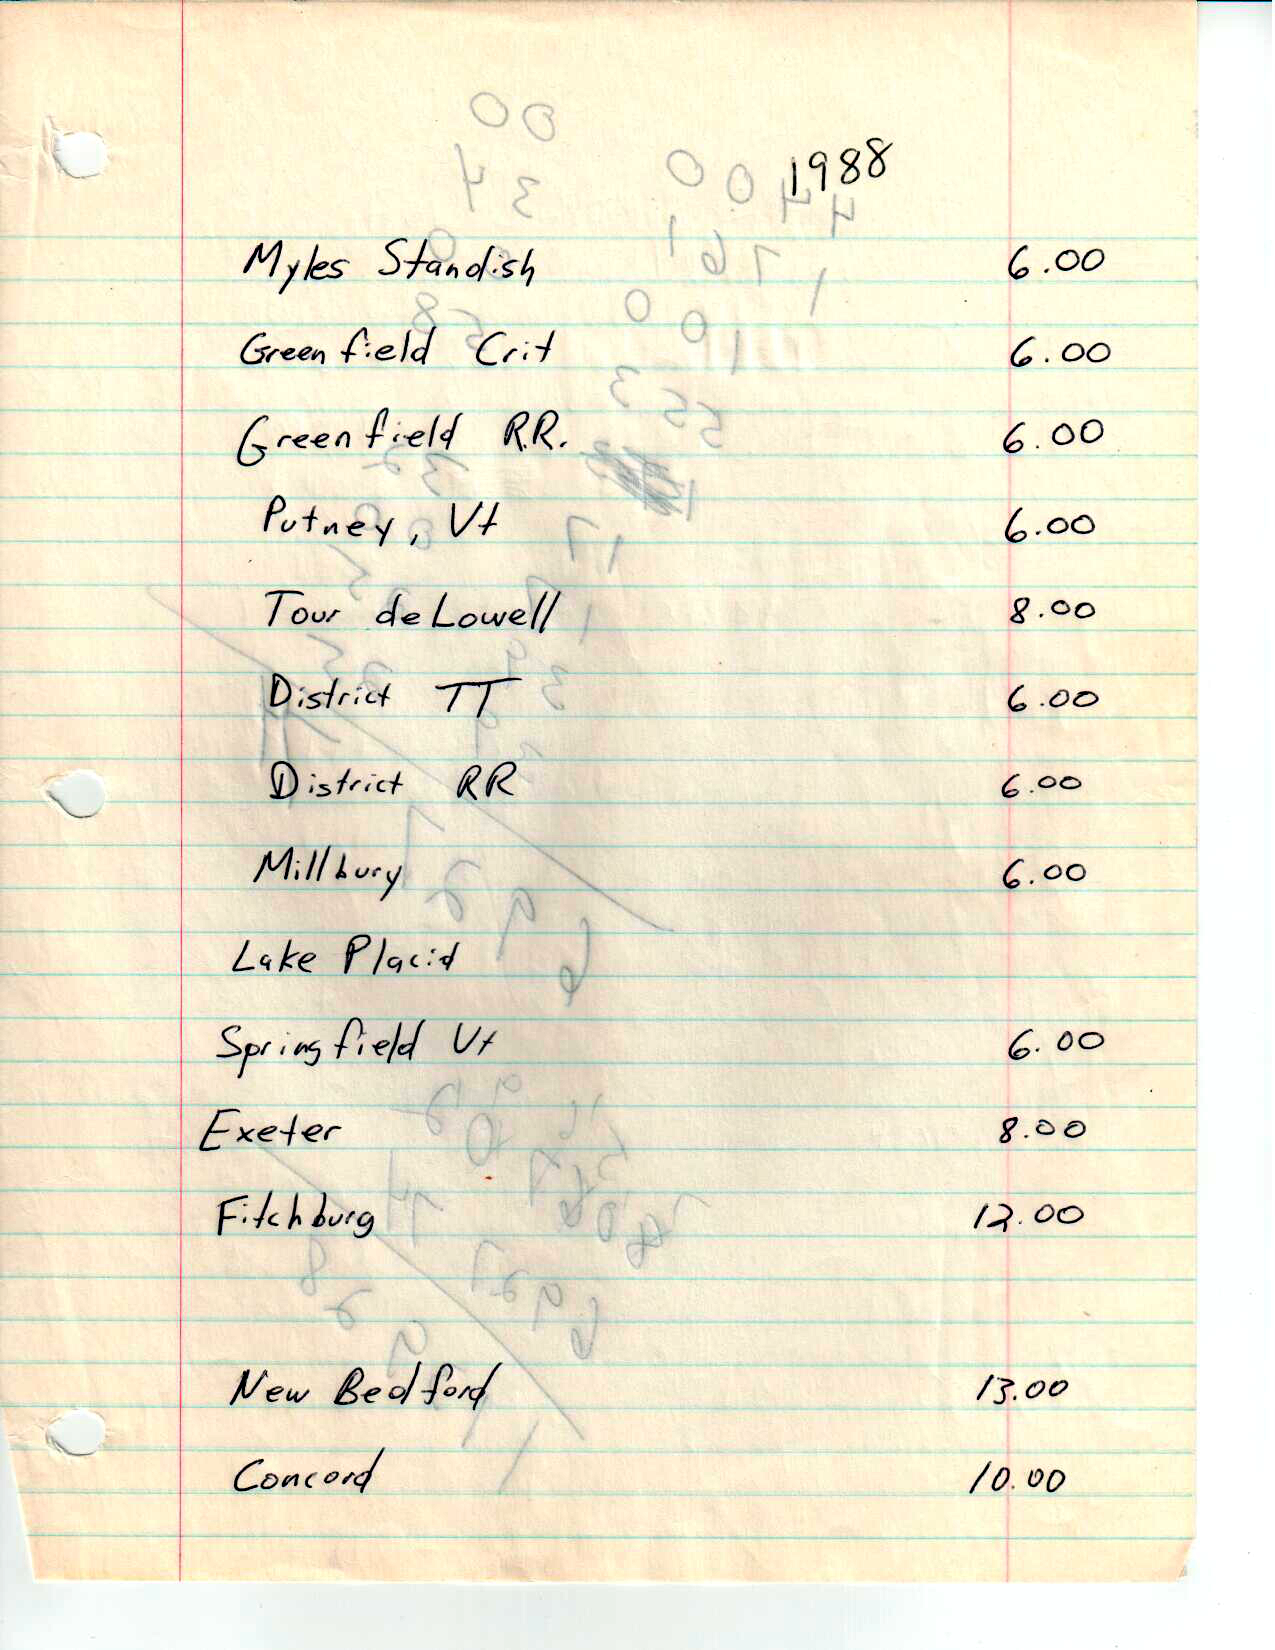 1988
Myles Standish 6.00
Greenfield Crit 6.00
Greenfield R.R. 6.00
Putney, Vt 6.00
Tour de Lowell 8.00
District TT 6.00
District RR 6.00
Millbury 6.00
Lake Placid
Springfield Vt 6.00
Exeter 8.00
Fitchburg 12.00
New Bedford 13.00
Concord 10.00